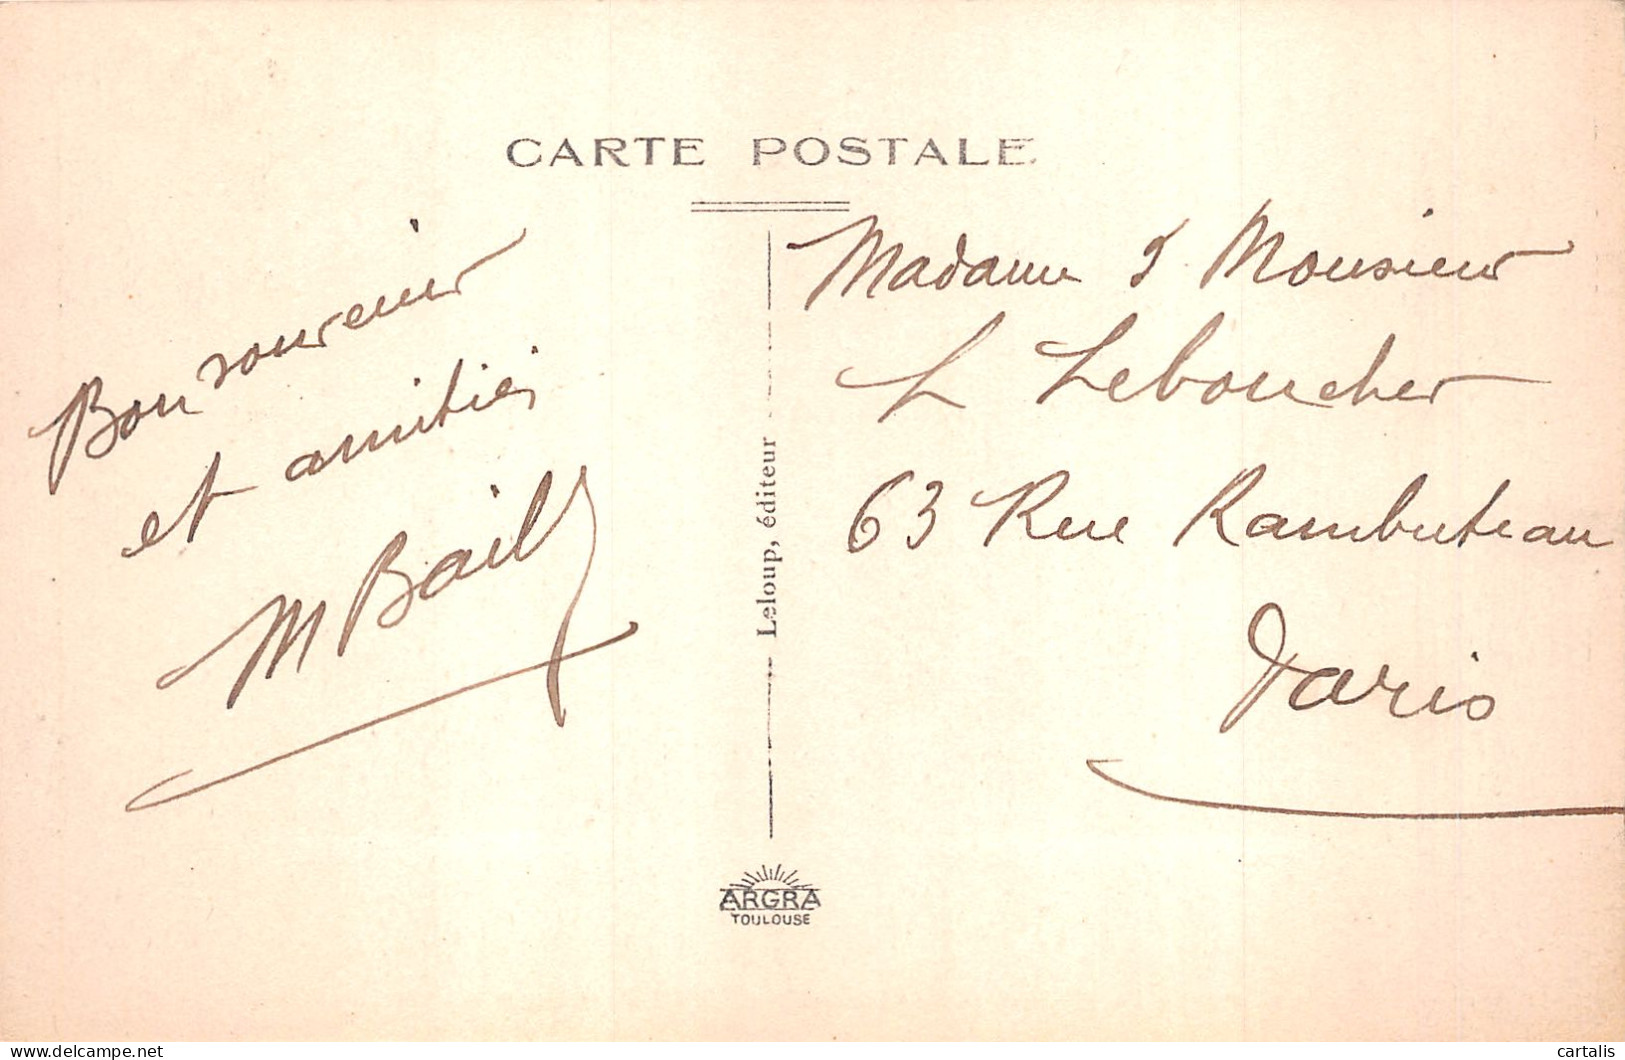 CARTE POSTALE
Bon souvenir
et amitiés
M Bailly
Leloup, éditeur
ARGRA
TOULOUSE
Madame & Monsieur
L Leboucher
63 Rue Rambuteau
Paris
delcampe.net
cartalis